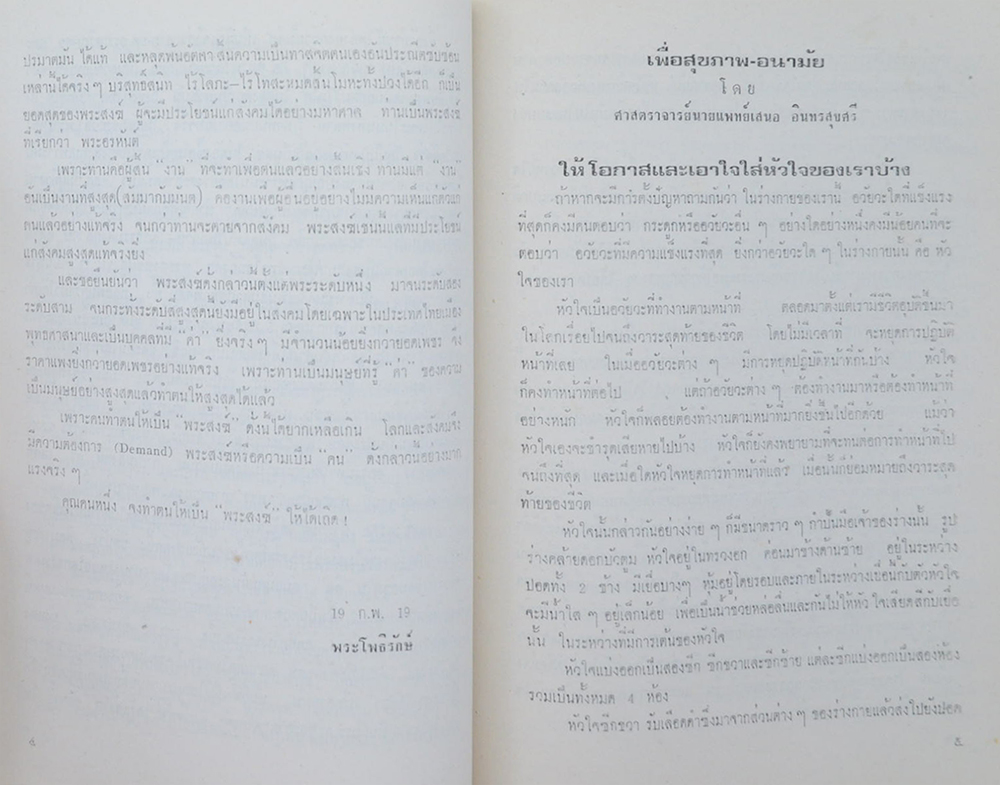 ปรมาตมัน ได้แท้ และหลุดพ้นอัตตา สิ้นความเป็นทาสจิตตนเองอันประณีตซับซ้อน
เหล่านี้ได้จริง ๆ บริสุทธิ์สนิท ไร้โลภะ–ไร้โทสะหมดสิ้นโมหะทั้งปวงได้อีก ก็เป็น
ยอดสุดของพระสงฆ์ ผู้จะมีประโยชน์แก่สังคมได้อย่างมหาศาล ท่านเป็นพระสงฆ์
ที่เรียกว่า พระอรหันต์
เพราะท่านคือผู้สิ้น "งาน" ที่จะทำเพื่อตนแล้วอย่างสิ้นเชิง ท่านมีแต่ "งาน"
อันเป็นงานที่สูงสุด(สัมมากัมมันต) คืองานเพื่อผู้อื่นอยู่อย่างไม่มีความเห็นแก่ตัวแก่
ตนแล้วอย่างแท้จริง จนกว่าท่านจะตายจากสังคม พระสงฆ์เช่นนี้แลที่มีประโยชน์
แก่สังคมสูงสุดแท้จริงยิ่ง
และขอยืนยันว่า พระสงฆ์ดังกล่าวนี้ตั้งแต่พระระดับหนึ่ง มาจนระดับสอง
ระดับสาม จนกระทั่งระดับสี่สูงสุดนี้ยังมีอยู่ในสังคมโดยเฉพาะในประเทศไทยเมือง
พุทธศาสนาและเป็นบุคคลที่มี "ค่า" ยิ่งจริง ๆ มีจำนวนน้อยยิ่งกว่ายอดเพชร จึง
ราคาแพงยิ่งกว่ายอดเพชรอย่างแท้จริง เพราะท่านเป็นมนุษย์ที่รู้ "ค่า" ของความ
เป็นมนุษย์อย่างสูงสุดแล้วทำตนให้สูงสุดได้แล้ว
เพราะคนทำตนให้เป็น "พระสงฆ์" ดั่งนี้ได้ยากเหลือเกิน โลกและสังคมจึง
มีความต้องการ (Demand) พระสงฆ์หรือความเป็น "คน" ดั่งกล่าวนี้อย่างมาก
แรงจริง ๆ
คุณคนหนึ่ง จงทำตนให้เป็น "พระสงฆ์" ให้ได้เถิด !
19 ก.พ. 19
พระโพธิรักษ์
๔
เพื่อสุขภาพ-อนามัย
โดย
ศาสตราจารย์นายแพทย์เสนอ อินทรสุขศรี
ให้โอกาสและเอาใจใส่หัวใจของเราบ้าง
ถ้าหากจะมีการตั้งปัญหาถามกันว่า ในร่างกายของเรานี้ อวัยวะใดที่แข็งแรง
ที่สุดก็คงมีคนตอบว่า กระดูกหรืออวัยวะอื่น ๆ อย่างใดอย่างหนึ่งคงมีน้อยคนที่จะ
ตอบว่า อวัยวะที่มีความแข็งแรงที่สุด ยิ่งกว่าอวัยวะใด ๆ ในร่างกายนั้น คือ หัว
ใจของเรา
หัวใจเป็นอวัยวะที่ทำงานตามหน้าที่ ตลอดมาตั้งแต่เรามีชีวิตอุบัติขึ้นมา
ในโลกเรื่อยไปจนถึงวาระสุดท้ายของชีวิต โดยไม่มีเวลาที่ จะหยุดการปฏิบัติ
หน้าที่เลย ในเมื่ออวัยวะต่าง ๆ มีการหยุดปฏิบัติหน้าที่กันบ้าง หัวใจ
ก็คงทำหน้าที่ต่อไป แต่ถ้าอวัยวะต่าง ๆ ต้องทำงานมาหรือต้องทำหน้าที่
อย่างหนัก หัวใจก็พลอยต้องทำงานตามหน้าที่มากยิ่งขึ้นไปอีกด้วย แม้ว่า
หัวใจเองจะชำรุดเสียหายไปบ้าง หัวใจก็ยังคงพยายามที่จะทนต่อการทำหน้าที่ไป
จนถึงที่สุด และเมื่อใดหัวใจหยุดการทำหน้าที่แล้ว เมื่อนั้นก็ย่อมหมายถึงวาระสุด
ท้ายของชีวิต
หัวใจนั้นกล่าวกันอย่างง่าย ๆ ก็มีขนาดราว ๆ กำปั้นมือเจ้าของร่างนั้น รูป
ร่างคล้ายดอกบัวตูม หัวใจอยู่ในทรวงอก ค่อนมาข้างด้านซ้าย อยู่ในระหว่าง
ปอดทั้ง 2 ข้าง มีเยื่อบางๆ หุ้มอยู่โดยรอบและภายในระหว่างเยื่อนี้กับตัวหัวใจ
จะมีน้ำใส ๆ อยู่เล็กน้อย เพื่อเป็นน้ำช่วยหล่อลื่นและกันไม่ให้หัวใจเสียดสีกับเยื่อ
นั้น ในระหว่างที่มีการเต้นของหัวใจ
หัวใจแบ่งออกเป็นสองซีก ซีกขวาและซีกซ้าย แต่ละซีกแบ่งออกเป็นสองห้อง
รวมเป็นทั้งหมด 4 ห้อง
หัวใจซีกขวา รับเลือดดำซึ่งมาจากส่วนต่าง ๆ ของร่างกายแล้วส่งไปยังปอด
๕